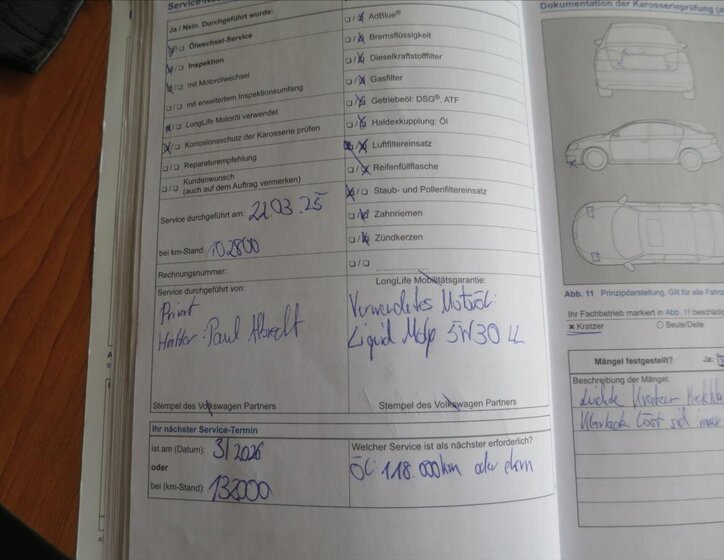 Service-
Ja / Nein. Durchgeführt wurde:
Ölwechsel-Service
Inspektion
mit Motorölwechsel
mit erweitertem Inspektionsumfang
LongLife Motoröl verwendet
Korrosionsschutz der Karosserie prüfen
Reparaturempfehlung
Kundenwunsch
(auch auf dem Auftrag vermerken)
Service durchgeführt am: 22.03.25
bei km-Stand: 102800
Rechnungsnummer:
Service durchgeführt von:
Privat
Halter: Paul Albrecht
Stempel des Volkswagen Partners
AdBlue®
Bremsflüssigkeit
Dieselkraftstofffilter
Gasfilter
Getriebeöl: DSG®, ATF
Haldexkupplung: Öl
Luftfiltereinsatz
Reifenfüllflasche
Staub- und Pollenfiltereinsatz
Zahnriemen
Zündkerzen
LongLife Mobilitätsgarantie:
Verwendetes Motoröl:
Liquid Moly 5W30 LL
Stempel des Volkswagen Partners
Ihr nächster Service-Termin
ist am (Datum): 3/2026
oder
bei (km-Stand): 132000
Welcher Service ist als nächster erforderlich?
Öl 118.000km oder dem
Dokumentation der Karosserieprüfung
Abb. 11 Prinzipdarstellung. Gilt für alle
Ihr Fachbetrieb markiert in Abb. 11
Kratzer
Beule/Delle
Mängel festgestellt? Ja:
Beschreibung der Mängel:
Leichte Kratzer
Klarlack löst sich